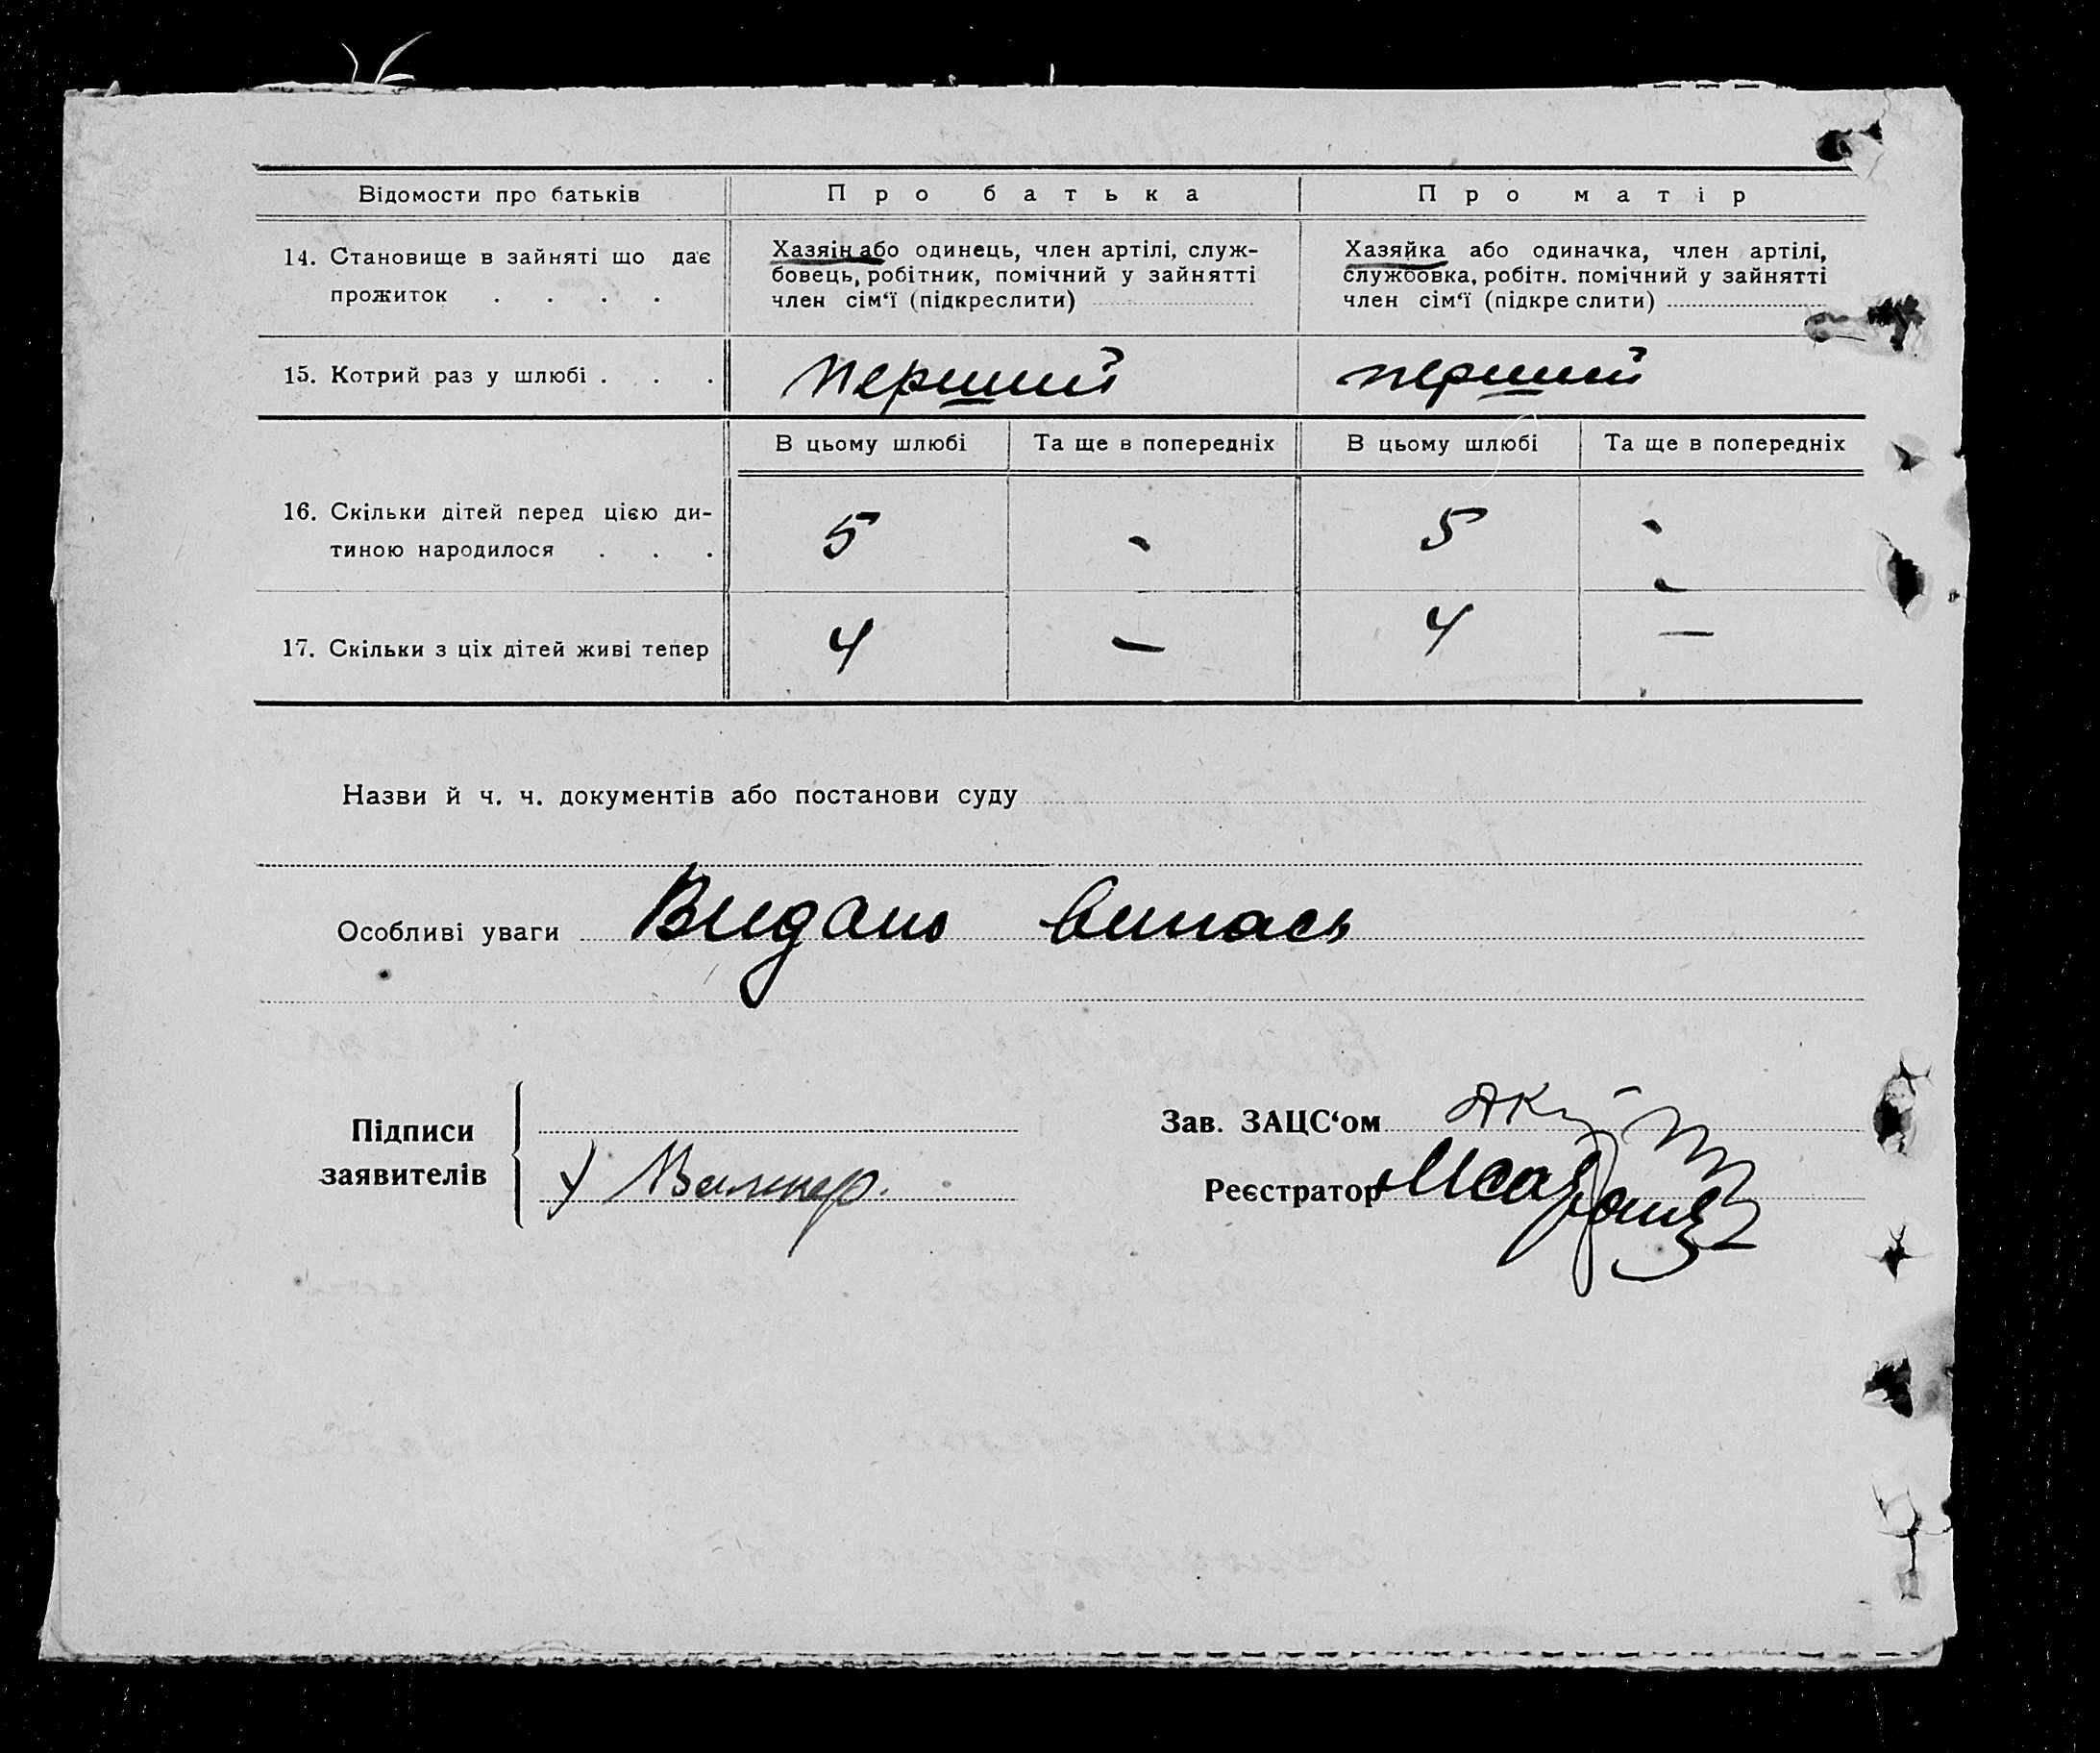 Відомости про батьків
Про батька
Про матір
14. Становище в зайняті що дає
прожиток . . . .
Хазяін або одинець, член артілі, служ-
бовець, робітник, помічний у зайнятті
член сім‘ї (підкреслити)
Хазяйка або одиначка, член артілі,
службовка, робітн. помічний у зайнятті
член сім‘ї (підкре слити)
15. Котрий раз у шлюбі . . .
перший
перший
В цьому шлюбі
Та ще в попередніх
В цьому шлюбі
Та ще в попередніх
16. Скільки дітей перед цією ди-
тиною народилося . . .
5
-
5
-
17. Скільки з ціх дітей живі тепер
4
—
4
—
Назви й ч. ч. документів або постанови суду
Особливі уваги Видано випись
Підписи
заявителів
Зав. ЗАЦС‘ом
Реєстратор